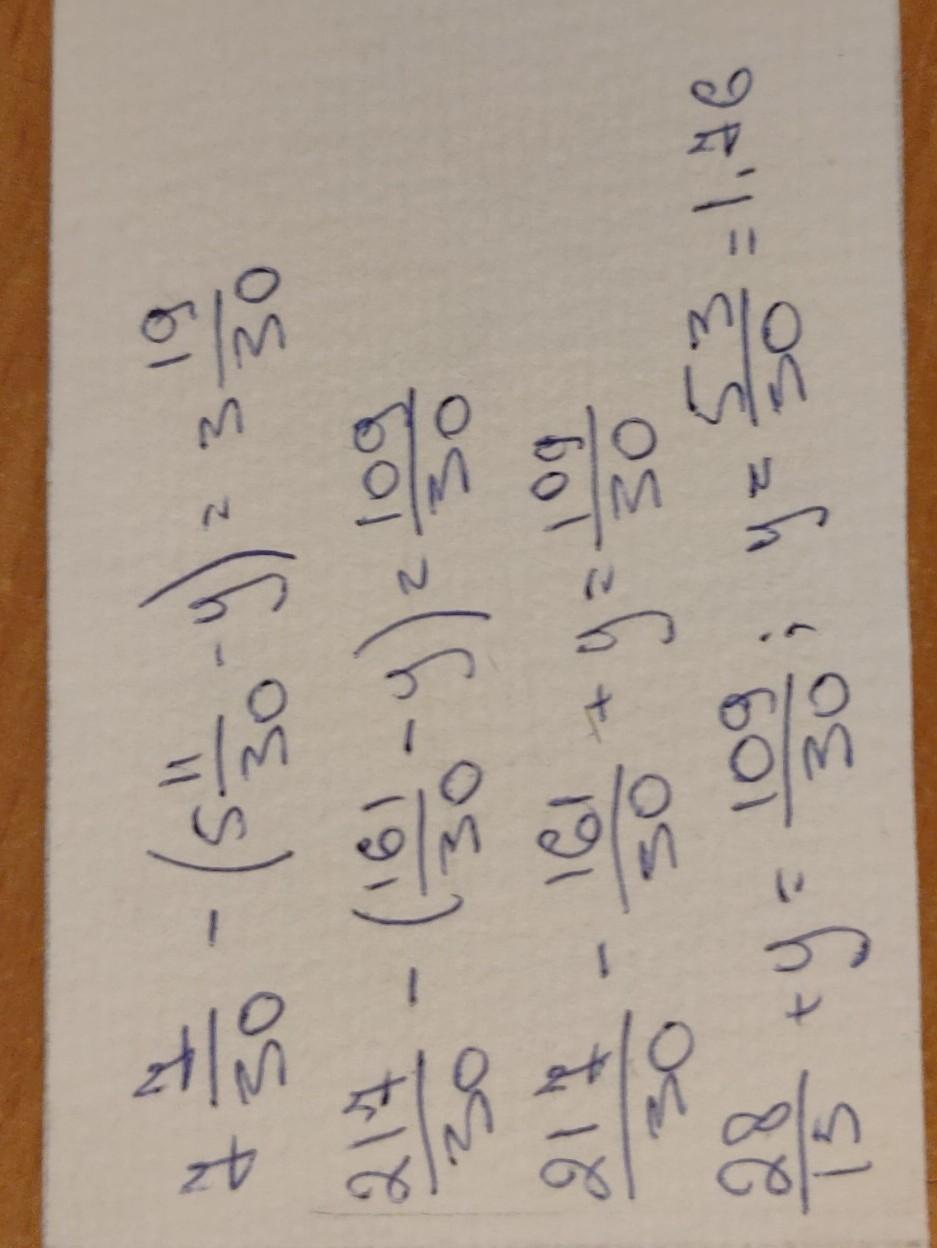 7 7/30 - (5 11/30 - y) = 3 19/30
217/30 - (161/30 - y) = 109/30
217/30 - 161/30 + y = 109/30
28/15 + y = 109/30; y = 53/30 = 1,76